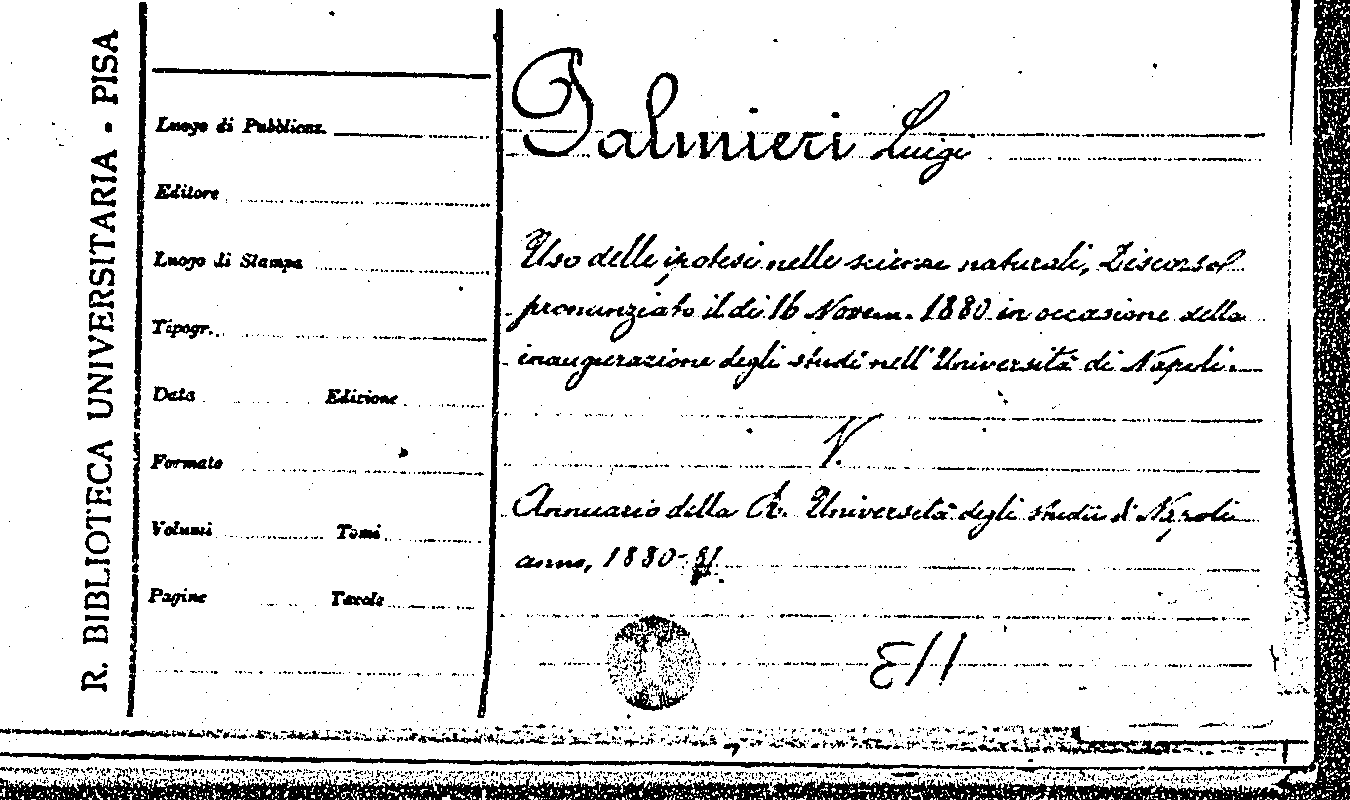 R. BIBLIOTECA UNIVERSITARIA - PISA
Luogo di Pubblicaz.
Editore
Luogo di Stampa
Tipogr.
Data Edizione
Formato
Volumi Tomi
Pagine Tavole
Palmieri Luigi
Uso delle ipotesi nelle scienze naturali, Discorso
pronunziato il dì 16 Novem. 1880 in occasione della
inaugurazione degli studi nell'Università di Napoli.
V.
Annuario della R. Università degli studii di Napoli
anno, 1880-81.